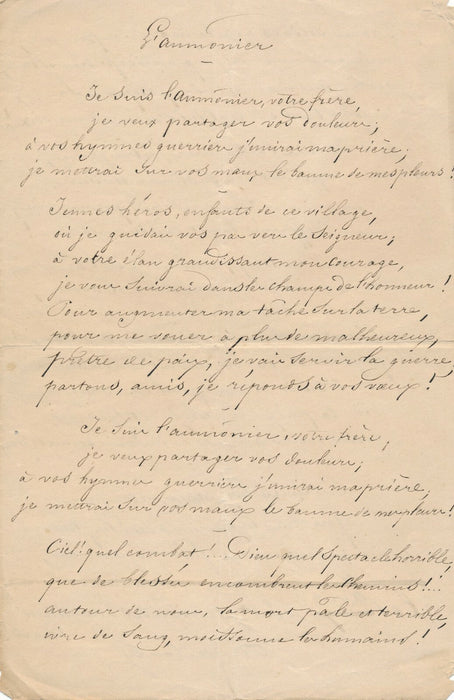 L'aumônier
Je suis l'aumônier, votre frère,
je veux partager vos douleurs;
à vos hymnes guerrier j'unirai ma prière,
je mettrai sur vos maux le baume de mes pleurs!
Jeunes héros, enfants de ce village,
où je guidais vos pas vers le Seigneur;
à votre élan grandissant mon courage,
je vous suivrai dans le champs de l'honneur!
Pour augmenter ma tâche sur la terre,
pour me vouer à plus de malheureux,
prêtre de paix, je vais servir la guerre,
partons, amis, je réponds à vos vœux!
Je suis l'aumônier, votre frère,
je veux partager vos douleurs;
à vos hymnes guerrier j'unirai ma prière,
je mettrai sur vos maux le baume de mes pleurs!
Ciel! quel combat!... Dieu quel spectacle horrible,
que de blessés encombrent les chemins!!..
autour de nous, la mort pâle et terrible,
ivre de sang, moissonne les humains!